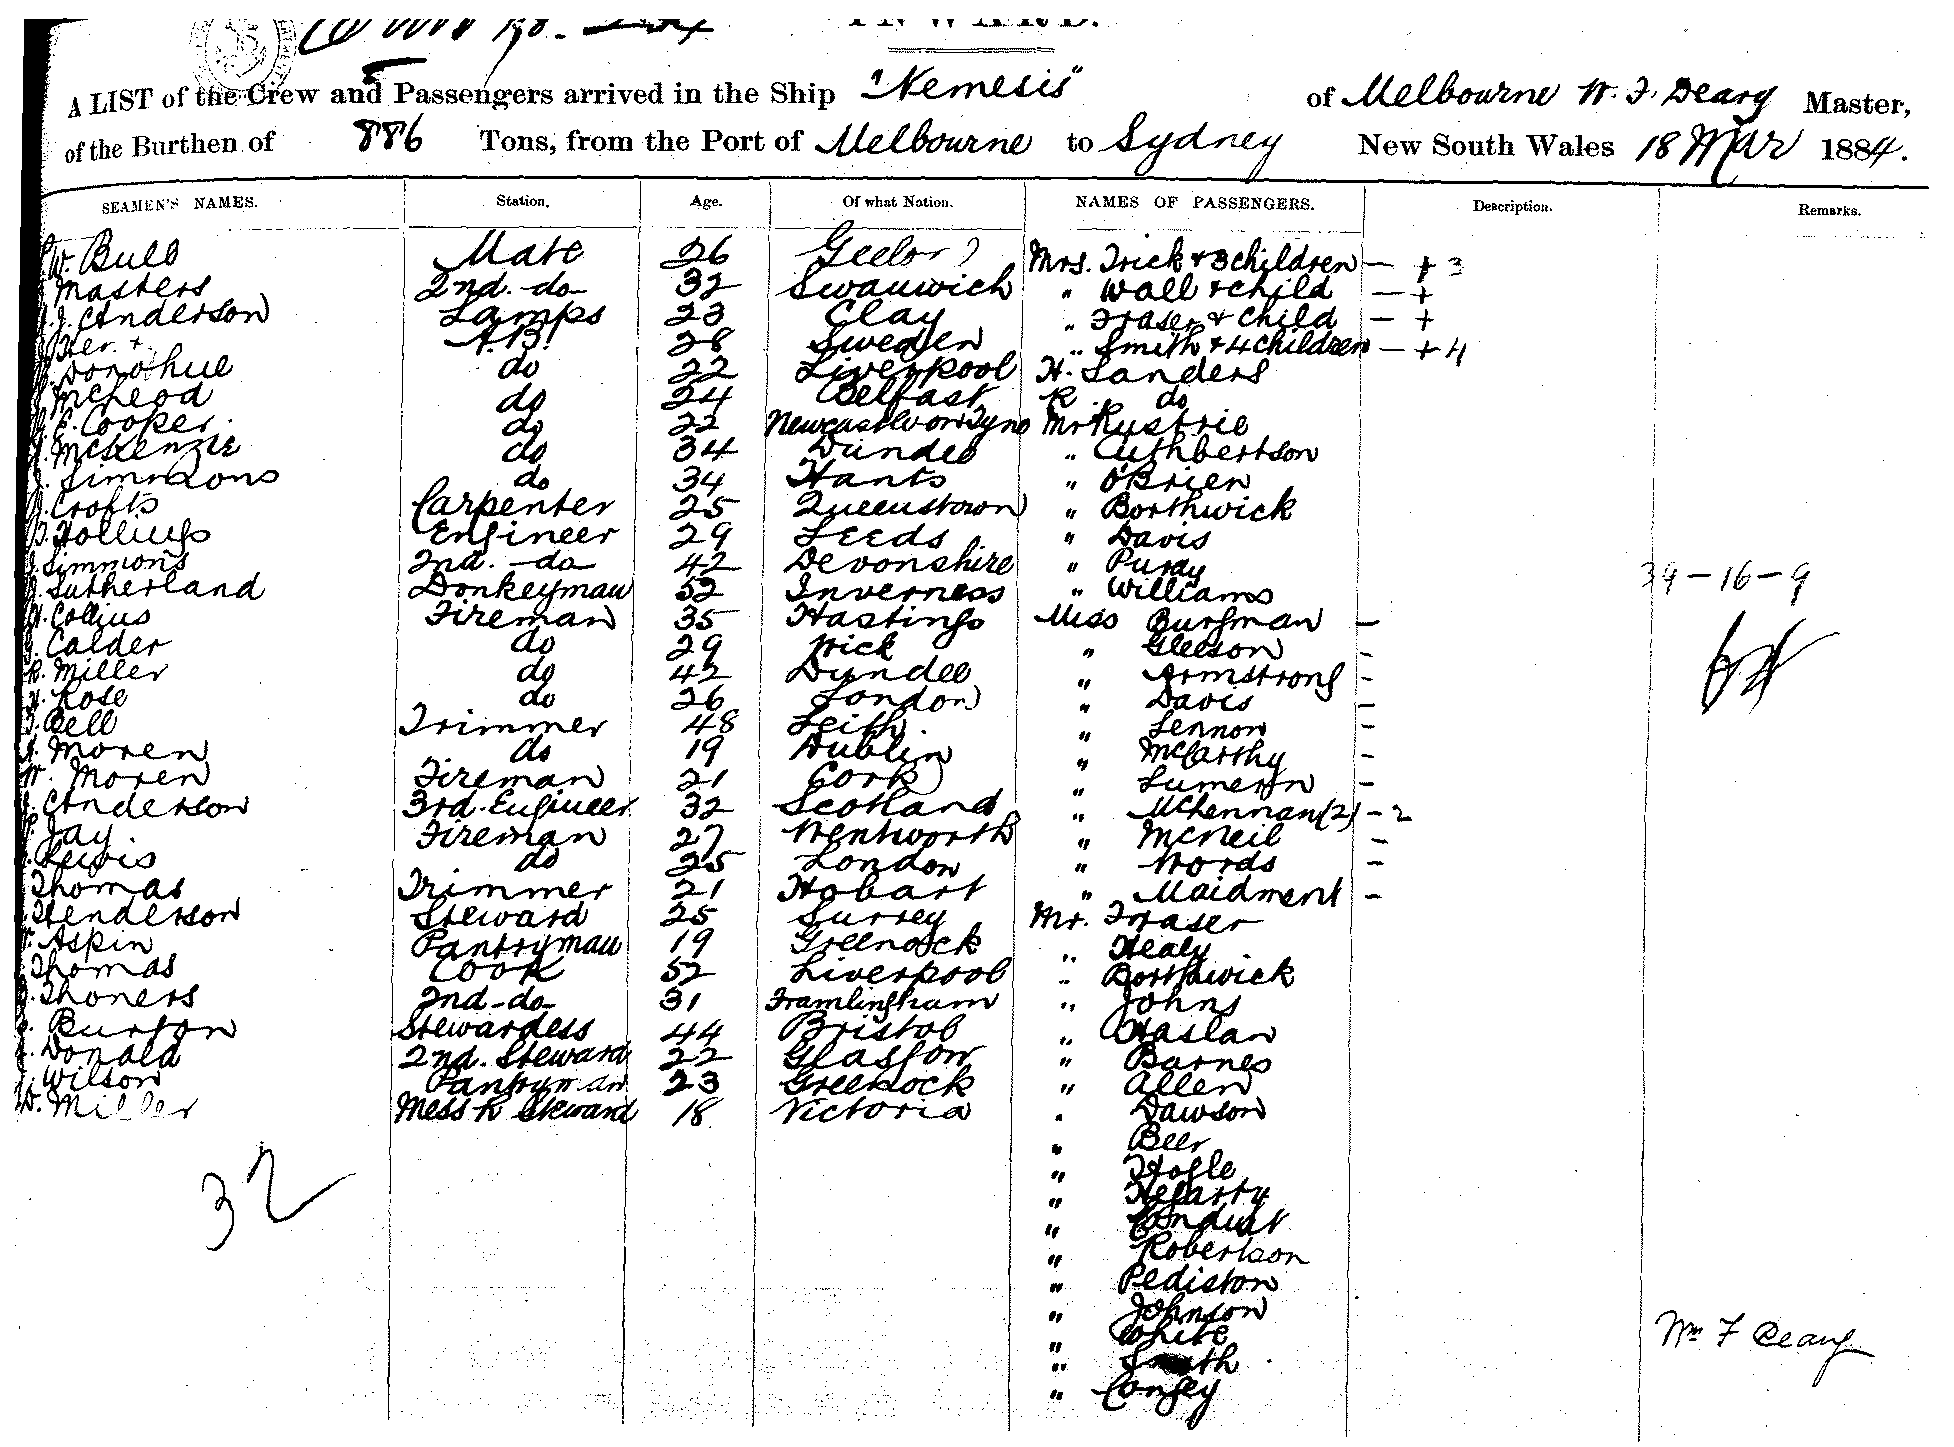 INWARD.
A LIST of the Crew and Passengers arrived in the Ship "Nemesis" of Melbourne W. F. Deary Master,
of the Burthen of 886 Tons, from the Port of Melbourne to Sydney New South Wales 18 Mar 1884.
SEAMEN'S NAMES. Station. Age. Of what Nation. NAMES OF PASSENGERS. Description. Remarks.
W. Bull Mate 26 Mrs. Trick & 3 children — + 3
Masters 2nd. do 32 Swanwich " Wall & child — +
J. Anderson Lamps 23 Clay " Fraser & Child — +
A.B. 28 Sweden " Smith & 4 children — + 4
Donohue do 22 Liverpool H. Sanders
McLeod do 24 Belfast R. do
E. Cooper do 22 Newcastle on Tyne Mr Rustrie
McKenzie do 34 Dundee " Cuthbertson
J. Simmons do 34 Hants " O'Brien
Crofts Carpenter 25 Queenstown " Borthwick
Hollings Engineer 29 Leeds " Davis
J. Simmons 2nd. - do 42 Devonshire " Purdy
J. Sutherland Donkeyman 52 Inverness " Williams 39 - 16 - 9
H. Collins Fireman 35 Hastings Miss Burgman —
J. Calder do 29 Wick " Gleeson -
R. Miller do 42 Dundee " Armstrong -
H. Rose do 26 London " Davis -
T. Bell Trimmer 48 Leith " Lennon -
J. Moren do 19 Dublin " McCarthy -
W. Moren Fireman 21 Cork " Lumern -
J. Anderson 3rd. Engineer 32 Scotland " McLennan (2) - 2
Jay Fireman 27 Wentworth " McNeil -
Lewis do 25 London " Words -
Thomas Trimmer 21 Hobart " Maidment -
Henderson Steward 25 Surrey Mr. Fraser
Aspin Pantryman 19 Greenock " Healy
Thomas Cook 52 Liverpool " Borthwick
J. Thoners 2nd - do 31 Framlingham " Johns
Burton Stewardess 44 Bristol " Haslan
Donald 2nd. Steward 22 Glasgow " Barnes
J. Wilson Pantryman 23 Greenock " Allen
D. Miller Mess R Steward 18 Victoria " Dawson
" Beer
32 " Hogle
" Hegarty
" Conduit
" Robertson
" Pediston
" Johnson
" White
Wm F Deary
" Smith
" Congey